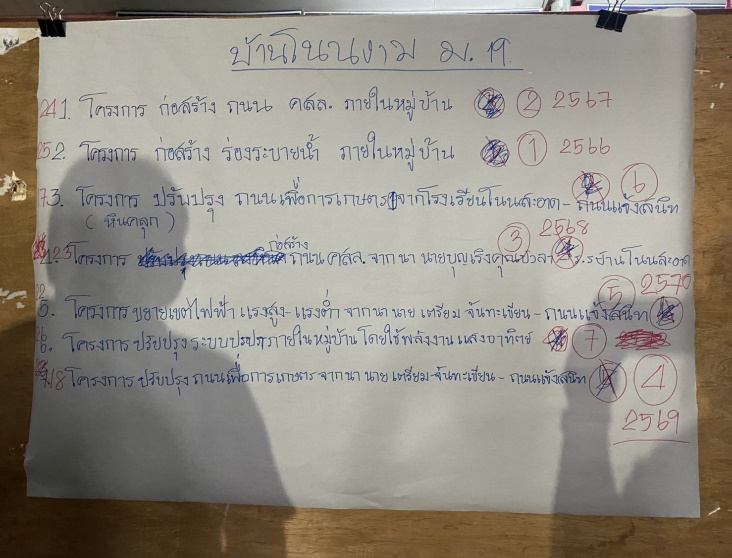 บ้านโนนงาม ม.19
1. โครงการ ก่อสร้าง ถนน คสล. ภายในหมู่บ้าน ② 2567
2. โครงการ ก่อสร้าง ร่องระบายน้ำ ภายในหมู่บ้าน ① 2566
3. โครงการ ปรับปรุง ถนนเพื่อการเกษตร จากโรงเรียนโนนสะอาด - ถนนแจ้งสนิท ⑥
( หินคลุก )
โครงการ ก่อสร้าง ถนน คสล. จาก นา นายบุญเริง ร.ร บ้านโนนสะอาด ③ 2568
5. โครงการ ขยายเขตไฟฟ้า แรงสูง - แรงต่ำ จาก นา นาย เตรียม จันทะเขียน - ถนนแจ้งสนิท ⑤ 2570
6. โครงการ ปรับปรุง ระบบประปาภายในหมู่บ้าน โดยใช้พลังงานแสงอาทิตย์ ⑦
โครงการ ปรับปรุง ถนนเพื่อการเกษตร จาก นา นาย เตรียม จันทะเขียน - ถนนแจ้งสนิท ④
2569